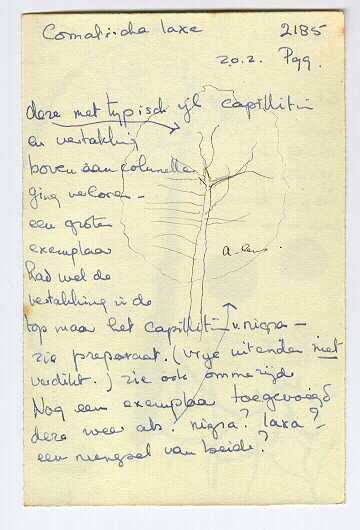 Comatricha laxa 2185
20.2. Pgg.
deze met typisch ijl capillitium
en vertakking
boven aan columella
ging verloren -
een groter
exemplaar
had wel de
vertakking in de
top maar het capillitium v. nigra -
zie preparaat. (vrije uiteinden niet
verdikt.) zie ook ommezijde
Nog een exemplaar toegevoegd
deze weer als: nigra? laxa?
een mengsel van beide?